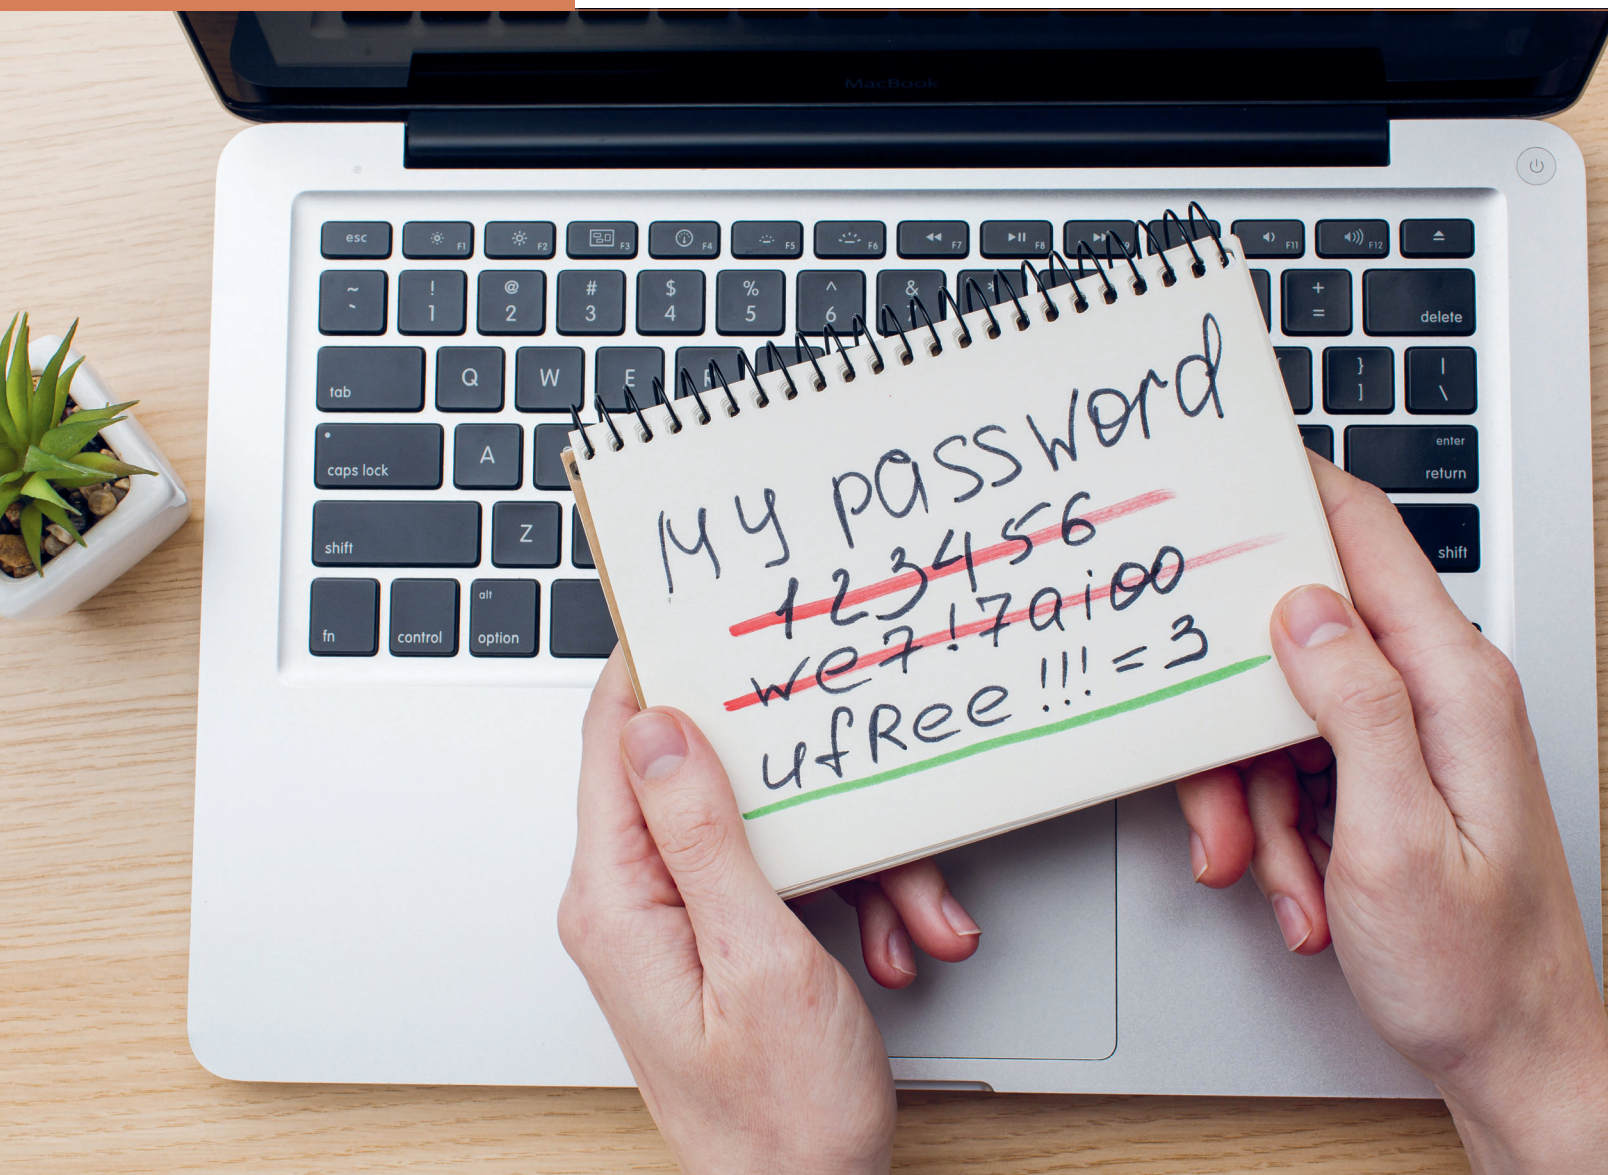 MacBook
esc F1 F2 F3 F4 F5 F6 F7 F8 F9 F11 F12
~ ! @ # $ % ^ & * +
` 1 2 3 4 5 6 = delete
tab Q W E R } |
] \
caps lock A enter
return
shift Z shift
fn control alt
option
My password
123456
we7!7aioo
ufRee!!!=3